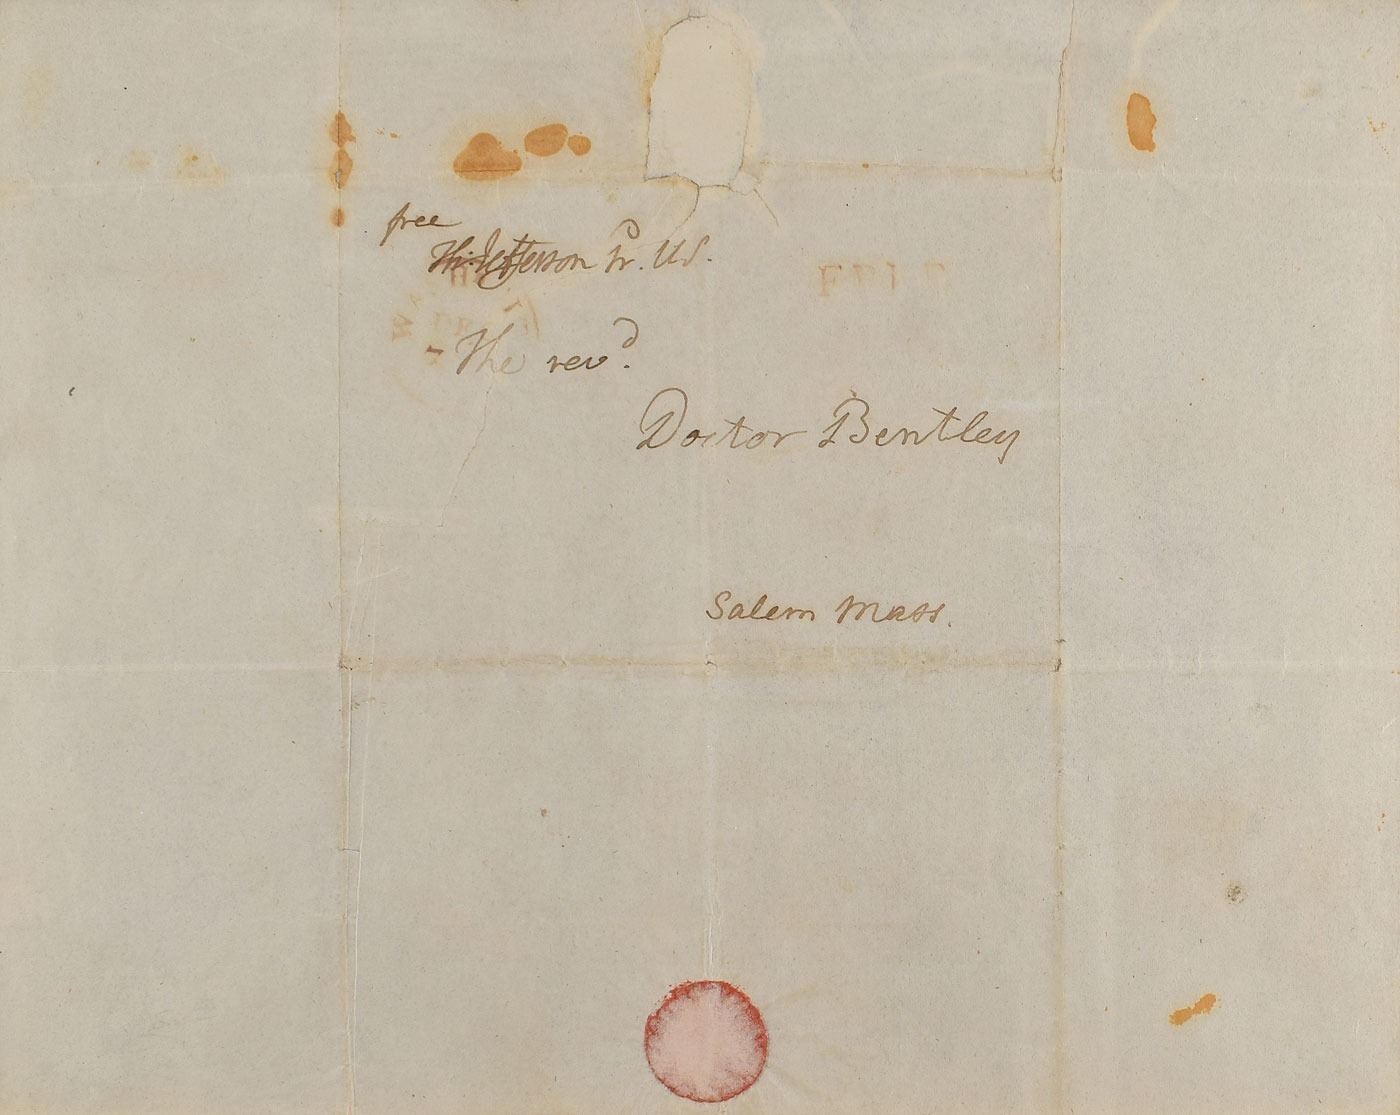 free
Th: Jefferson Pr. U.S.
The rev^d.
Doctor Bentley
Salem Mass.